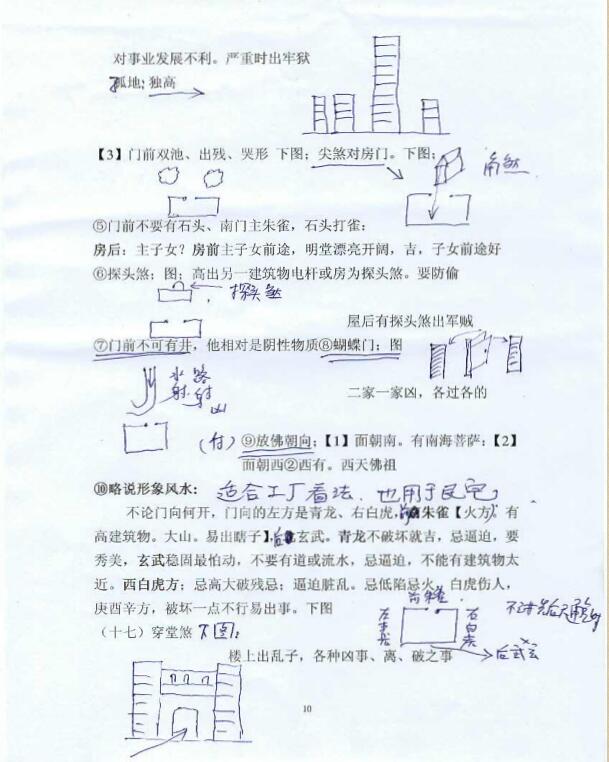 对事业发展不利。严重时出牢狱
孤地; 独高
【3】门前双池、出残、哭形 下图; 尖煞对房门。下图;
角煞
⑤门前不要有石头、南门主朱雀，石头打雀:
房后：主子女？房前主子女前途，明堂漂亮开阔，吉，子女前途好
⑥探头煞；图；高出另一建筑物电杆或房为探头煞。要防偷
探头煞
屋后有探头煞出军贼
⑦门前不可有井，他相对是阴性物质⑧蝴蝶门；图
水路
射射
凶
二家一家凶，各过各的
(付) ⑨放佛朝向；【1】面朝南。有南海菩萨；【2】
面朝西②西有。西天佛祖
⑩略说形象风水： 适合工厂看法、也用于民宅
不论门向何开，门向的左方是青龙、右白虎，前朱雀【火方】。有
高建筑物。大山。易出瞎子】，后玄武。青龙不破坏就吉，忌逼迫，要
秀美，玄武稳固最怕动，不要有道或流水，忌逼迫，不能有建筑物太
近。西白虎方；忌高大破残忌；逼迫脏乱。忌低陷忌火。白虎伤人，
庚酉辛方，被坏一点不行易出事。下图
前朱雀
左青龙
右白虎
后玄武
(十七) 穿堂煞 下图:
楼上出乱子，各种凶事、离、破之事
10